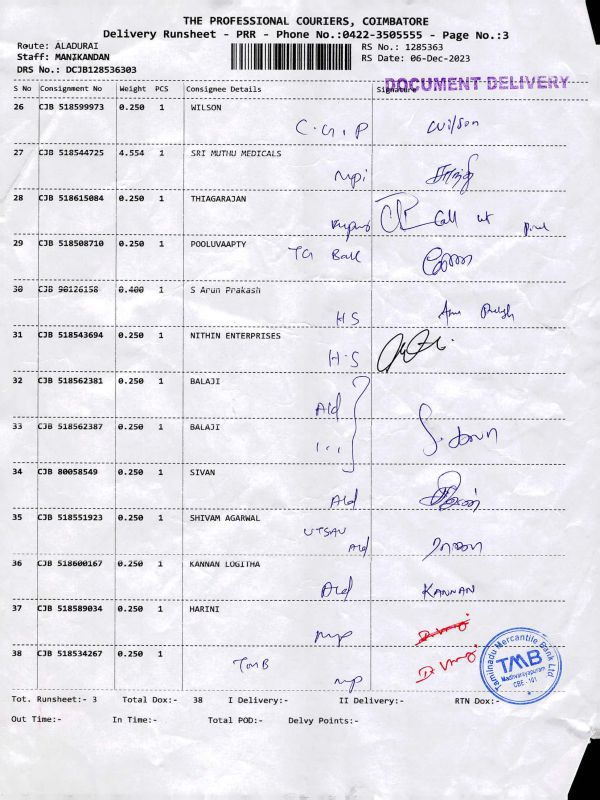 THE PROFESSIONAL COURIERS, COIMBATORE
Delivery Runsheet - PRR - Phone No.:0422-3505555 - Page No.:3
Route: ALADURAI RS No.: 1285363
Staff: MANIKANDAN RS Date: 06-Dec-2023
DRS No.: DCJB128536303
DOCUMENT DELIVERY
S No Consignment No Weight PCS Consignee Details Signature
26 CJB 518599973 0.250 1 WILSON
Wilson
27 CJB 518544725 4.554 1 SRI MUTHU MEDICALS
28 CJB 518615084 0.250 1 THIAGARAJAN
Call
29 CJB 518508710 0.250 1 POOLUVAAPTY
30 CJB 90126158 0.400 1 S Arun Prakash
HS
31 CJB 518543694 0.250 1 NITHIN ENTERPRISES
H-S
32 CJB 518562381 0.250 1 BALAJI
Ald
33 CJB 518562387 0.250 1 BALAJI
34 CJB 80058549 0.250 1 SIVAN
Ald
35 CJB 518551923 0.250 1 SHIVAM AGARWAL
UTSAV
Ald
36 CJB 518600167 0.250 1 KANNAN LOGITHA
Ald KANNAN
37 CJB 518589034 0.250 1 HARINI
mp
38 CJB 518534267 0.250 1
TMB
mp
Tamilnadu Mercantile Bank Ltd
TMB
Madhvarayapuram
CBE - 101
Tot. Runsheet:- 3 Total Dox:- 38 I Delivery:- II Delivery:- RTN Dox:-
Out Time:- In Time:- Total POD:- Delvy Points:-